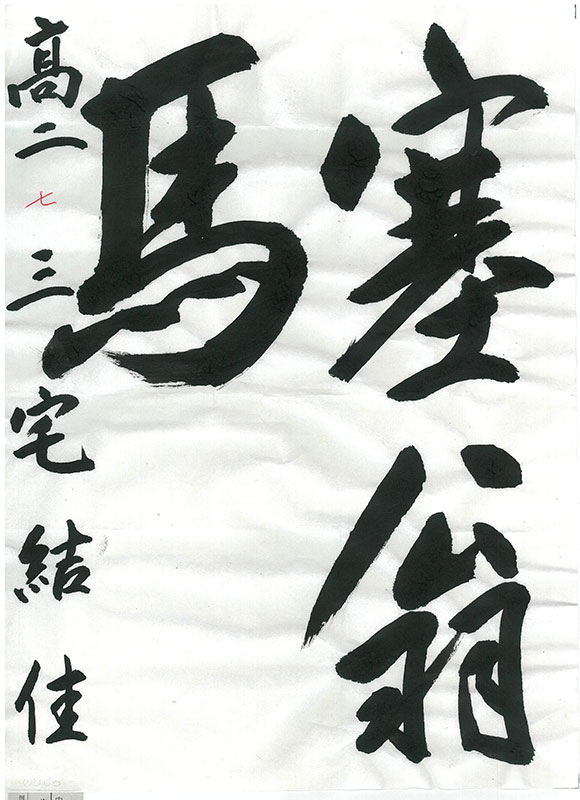 塞翁
馬
高二 七 三宅結佳